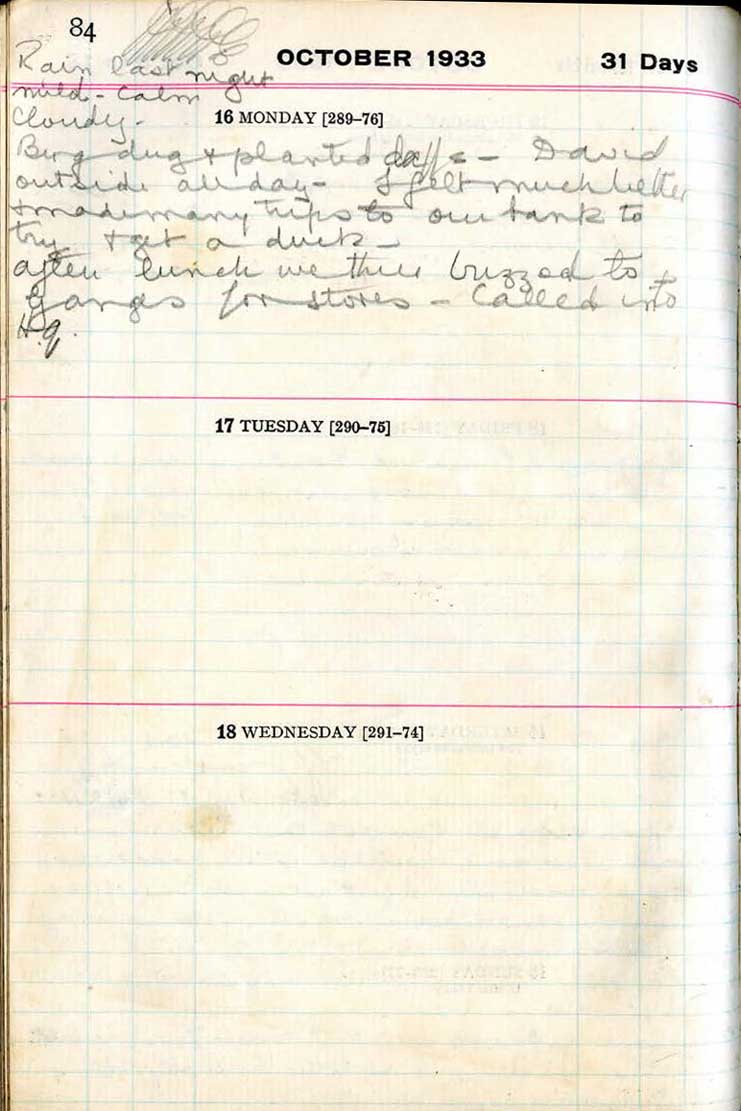 84
OCTOBER 1933 31 Days
Rain last night
mild - Calm
Cloudy -
16 MONDAY [289–76]
Berg dug + planted daffs - David
outside all day - I felt much better
+ made many trips to our tank to
try + get a duck -
after lunch we three buzzed to
Ganges for stores - Called into
H.q.
17 TUESDAY [290–75]
18 WEDNESDAY [291–74]